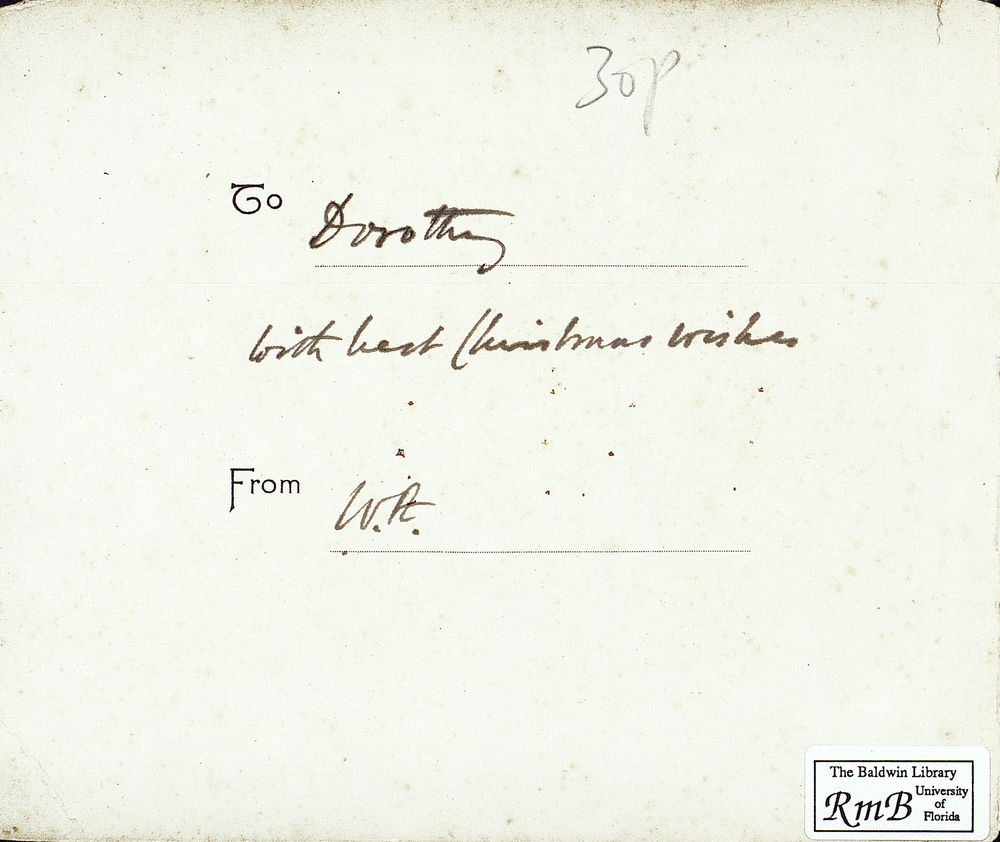 30p
To Dorothy
with best Christmas wishes
From W.R.
The Baldwin Library
RmB University of Florida